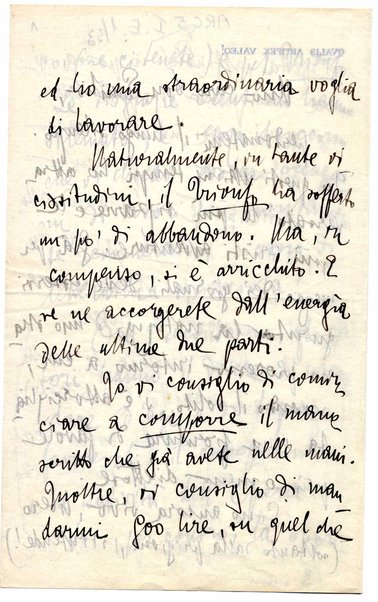 ed ho una straordinaria voglia
di lavorare.
Naturalmente, in tante vi
cissitudini, il Trionfo ha sofferto
un po' di abbandono. Ma, in
compenso, si è arricchito. E
ve ne accorgerete dall'energia
delle ultime due parti.
Io vi consiglio di comin
ciare a comporre il mano
scritto che già avete nelle mani.
Inoltre, vi consiglio di man
darmi 500 lire, in quel chè